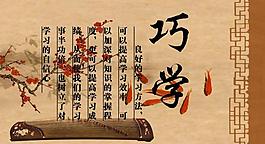 巧学
良好的学习方法
可以提高学习效率，可
以加深对知识的掌握程
度，更可以提高学习成
绩，从而使我们的学习
事半功倍，也树立了对
学习的自信心